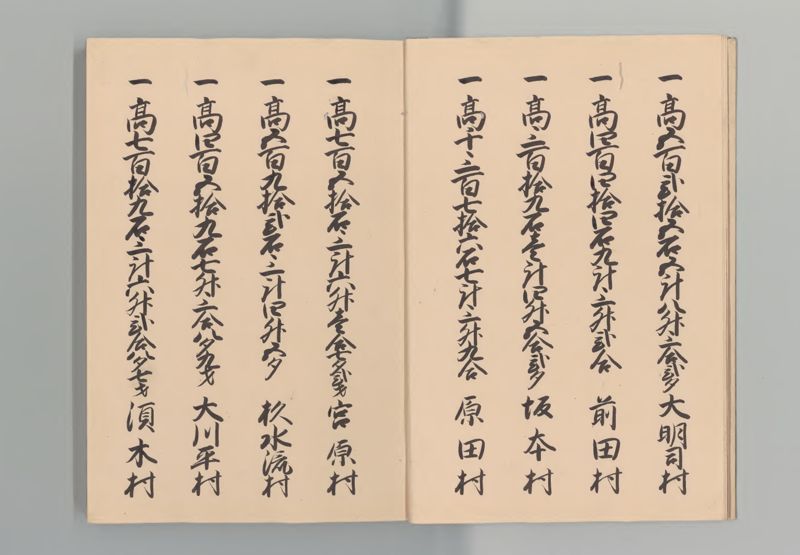 一高五百弐拾五石五斗八升三合弐夕大明司村
一高四百四拾四石九斗三升弐合前田村
一高三百拾九石壱斗四升五合弐夕坂本村
一高千三百七拾六石七斗三升九合原田村
一高七百五拾石三斗六升壱合七夕弐才宮原村
一高五百九拾弐石三斗四升五夕杉水流村
一高四百五拾九石七升三合八夕九才大川平村
一高七百拾九石三斗六升弐合八夕七才須木村